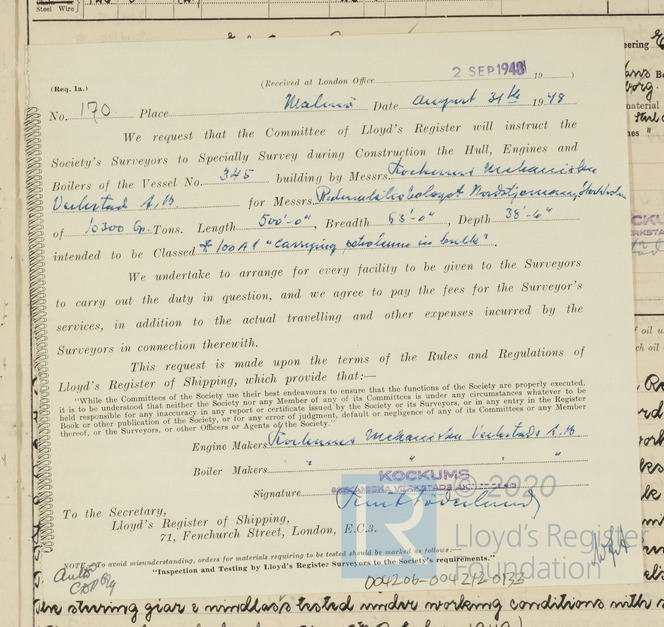 Steel Wire
(Req. 1a.)
(Received at London Office 2 SEP 1948 19 )
No. 170. Place Malmö Date August 31th 1948
We request that the Committee of Lloyd's Register will instruct the
Society's Surveyors to Specially Survey during Construction the Hull, Engines and
Boilers of the Vessel No. 345 building by Messrs. Kockums Mekaniska
Verkstad A.B. for Messrs. Rederiaktiebolaget Nordstjernan, Stockholm
of 10300 Gr. Tons. Length 500'-0", Breadth 63'-0", Depth 38'-6"
intended to be Classed ✠ 100 A 1 "carrying petroleum in bulk".
We undertake to arrange for every facility to be given to the Surveyors
to carry out the duty in question, and we agree to pay the fees for the Surveyor's
services, in addition to the actual travelling and other expenses incurred by the
Surveyors in connection therewith.
This request is made upon the terms of the Rules and Regulations of
Lloyd's Register of Shipping, which provide that:—
"While the Committees of the Society use their best endeavours to ensure that the functions of the Society are properly executed,
it is to be understood that neither the Society nor any Member of any of its Committees is under any circumstances whatever to be
held responsible for any inaccuracy in any report or certificate issued by the Society or its Surveyors, or in any entry in the Register
Book or other publication of the Society, or for any error of judgment, default or negligence of any of its Committees or any Member
thereof, or the Surveyors, or other Officers or Agents of the Society."
Engine Makers Kockums Mekaniska Verkstads A.B
Boiler Makers " " " "
KOCKUMS
MEKANISKA VERKSTADS AKTIEBOLAG
Signature
© 2020
To the Secretary,
Lloyd's Register of Shipping,
71, Fenchurch Street, London, E.C.3.
Lloyd's Register
Foundation
NOTE.—To avoid misunderstanding, orders for materials requiring to be tested should be marked as follows:—
"Inspection and Testing by Lloyd's Register Surveyors to the Society's requirements."
004206-004212-0133
steering gear & windlass tested under working conditions with